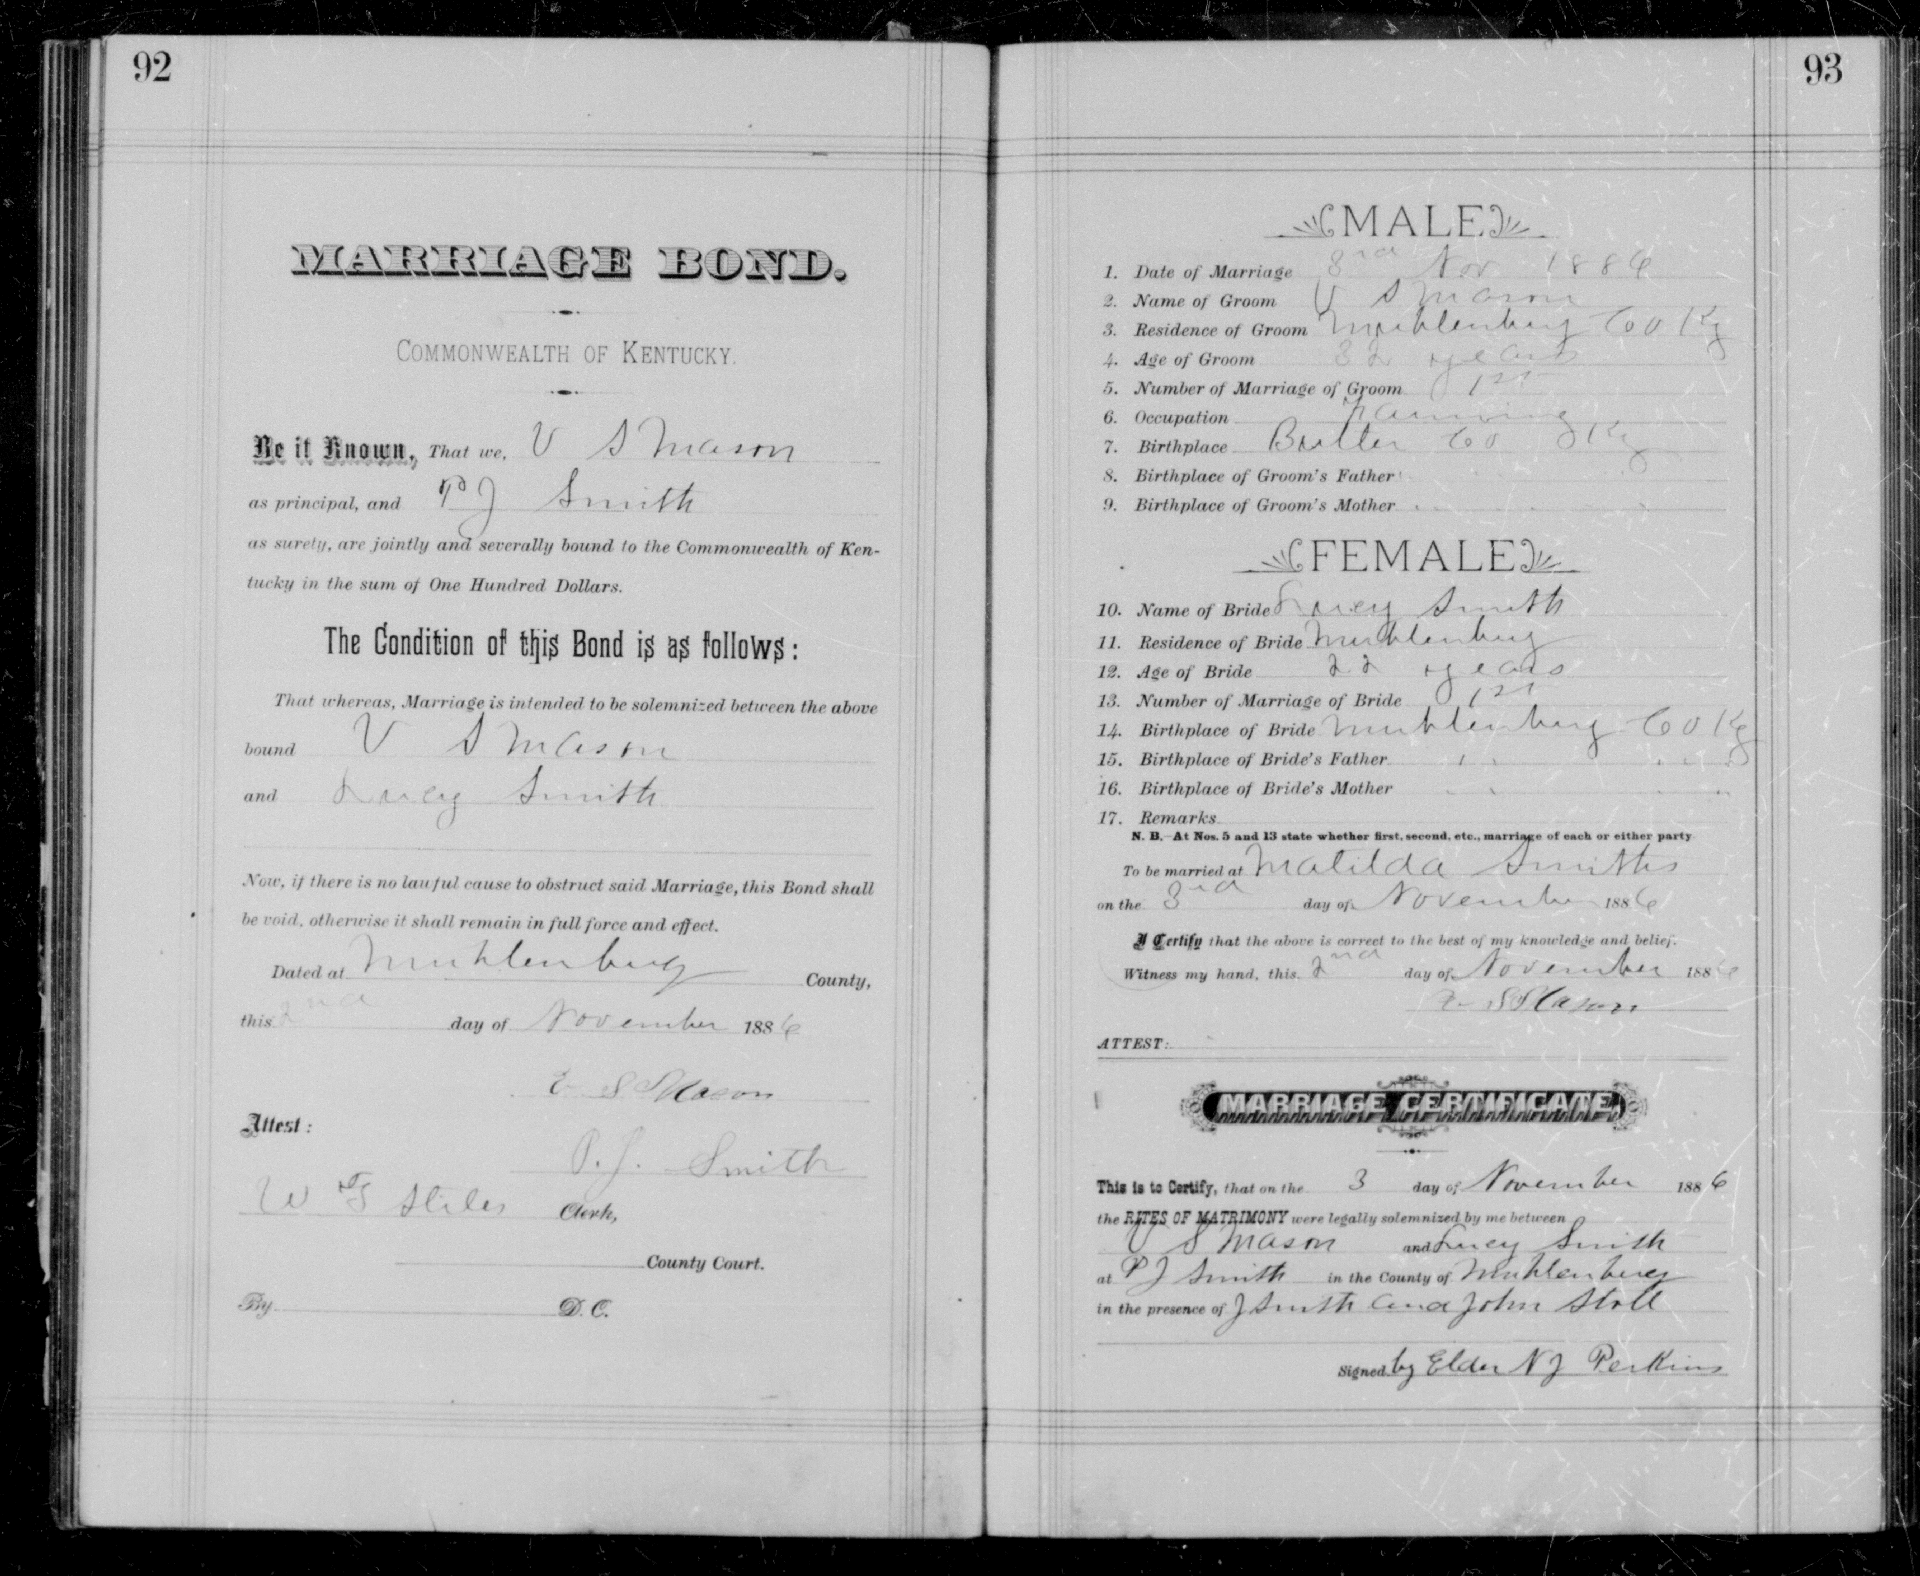 92
MARRIAGE BOND.
COMMONWEALTH OF KENTUCKY.
Be it Known, That we, V S Mason
as principal, and P J Smith
as surety, are jointly and severally bound to the Commonwealth of Ken-
tucky in the sum of One Hundred Dollars.
The Condition of this Bond is as follows:
That whereas, Marriage is intended to be solemnized between the above
bound V S Mason
and Lucy Smith
Now, if there is no lawful cause to obstruct said Marriage, this Bond shall
be void, otherwise it shall remain in full force and effect.
Dated at Muhlenburg County,
this 2nd day of November 1886
S Mason
Attest:
P. J. Smith
W Stiles Clerk,
County Court.
By D. C.
93
MALE
1. Date of Marriage 3rd Nov 1886
2. Name of Groom V S Mason
3. Residence of Groom Muhlenburg Co Ky
4. Age of Groom 32 years
5. Number of Marriage of Groom 1st
6. Occupation Farming
7. Birthplace Butler Co Ky
8. Birthplace of Groom's Father
9. Birthplace of Groom's Mother
FEMALE
10. Name of Bride Lucy Smith
11. Residence of Bride Muhlenburg
12. Age of Bride 22 years
13. Number of Marriage of Bride 1st
14. Birthplace of Bride Muhlenburg Co Ky
15. Birthplace of Bride's Father " "
16. Birthplace of Bride's Mother " "
17. Remarks
N. B.—At Nos. 5 and 13 state whether first, second, etc., marriage of each or either party
To be married at Matilda Smiths
on the 3rd day of November 1886
I Certify that the above is correct to the best of my knowledge and belief.
Witness my hand, this 2nd day of November 1886
S Mason
ATTEST:
MARRIAGE CERTIFICATE
This is to Certify, that on the 3 day of November 1886
the RITES OF MATRIMONY were legally solemnized by me between
V S Mason and Lucy Smith
at P J Smith in the County of Muhlenburg
in the presence of J Smith and John Stoll
Signed by Elder N J Perkins